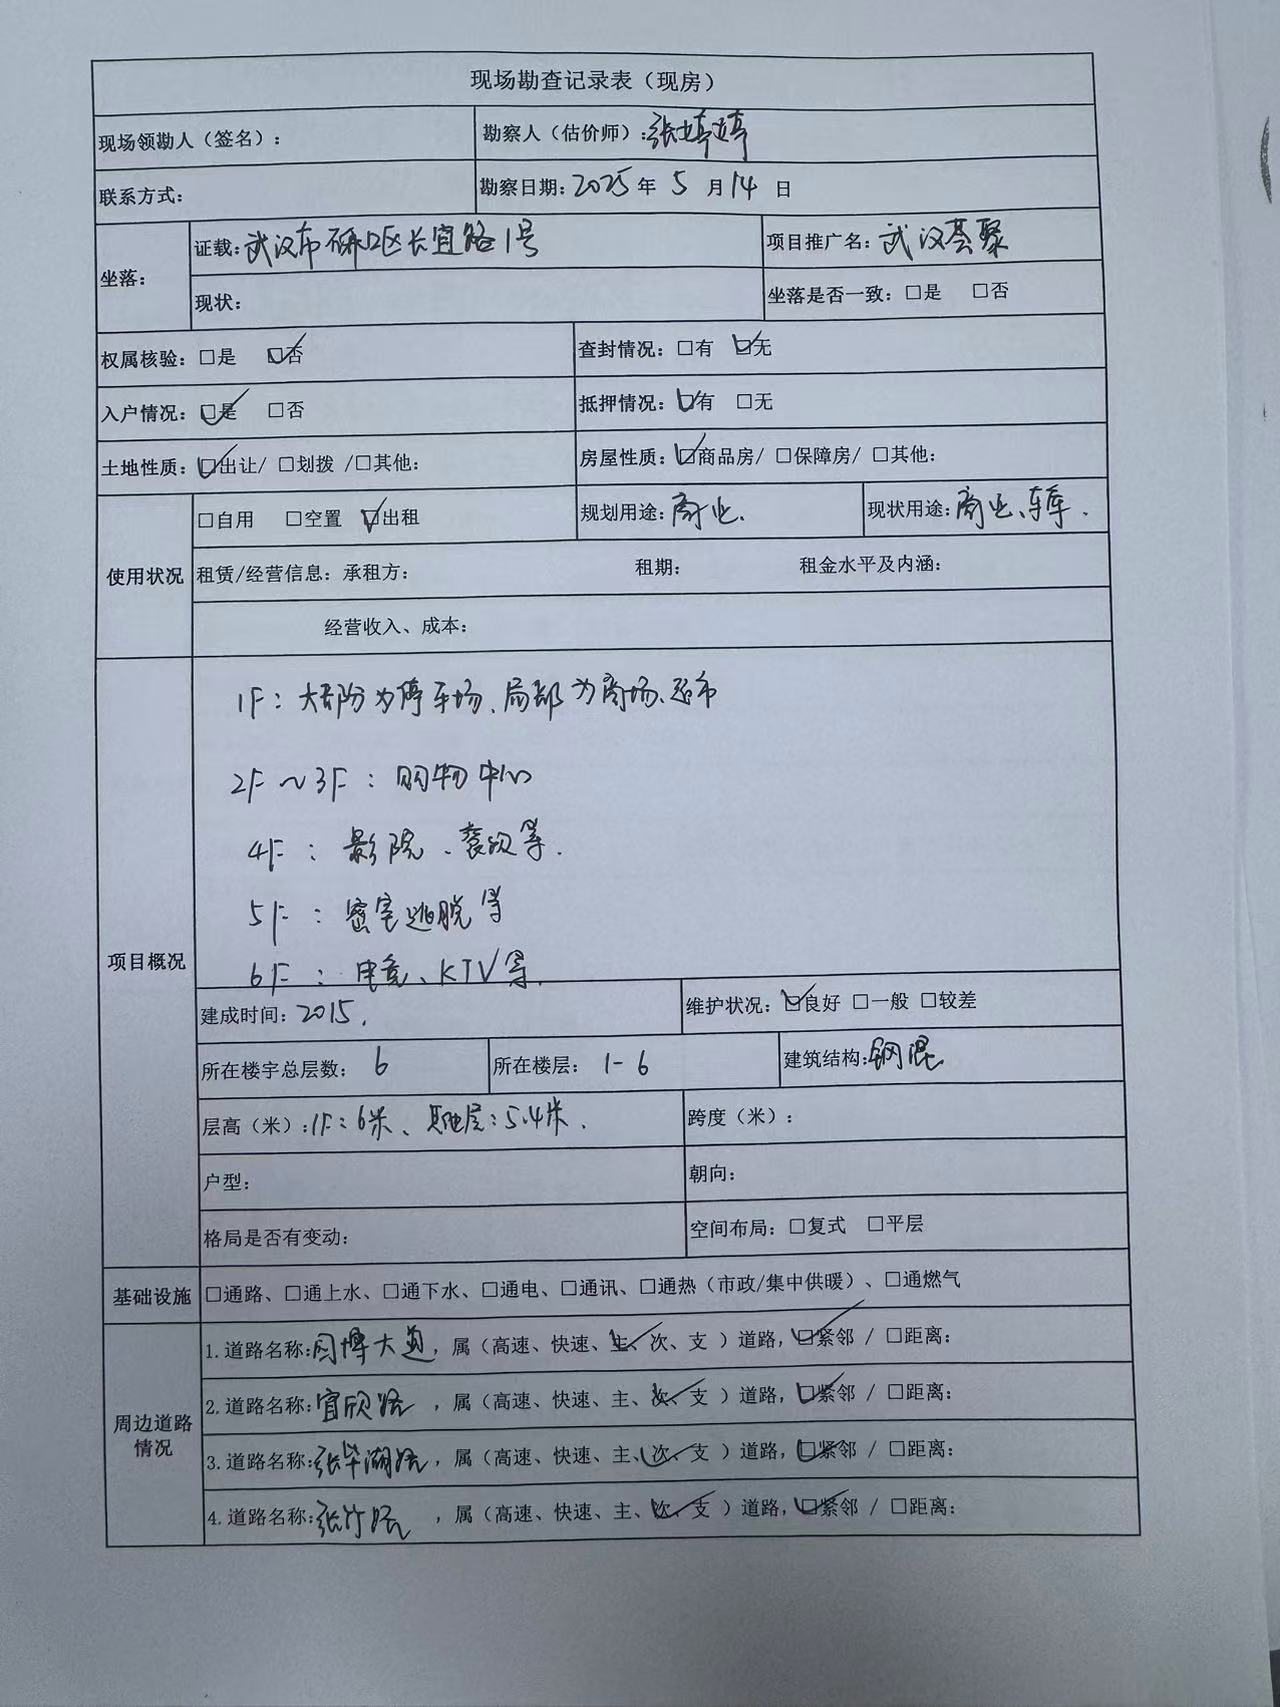 现场勘查记录表（现房）
现场领勘人（签名）：
勘察人（估价师）：张婷婷
联系方式：
勘察日期：2025年 5 月14 日
坐落：
证载：武汉市硚口区长宜路1号
项目推广名：武汉荟聚
现状：
坐落是否一致：□是 □否
权属核验：□是 ☑否
查封情况：□有 ☑无
入户情况：☑是 □否
抵押情况：☑有 □无
土地性质：☑出让/ □划拨 /□其他：
房屋性质：☑商品房/ □保障房/ □其他：
使用状况
□自用 □空置 ☑出租
规划用途：商业.
现状用途：商业、车库.
租赁/经营信息：承租方： 租期： 租金水平及内涵：
经营收入、成本：
项目概况
1F：大部份为停车场、局部为商场、超市
2F～3F：购物中心
4F：影院、餐饮等.
5F：密室逃脱等
6F：电竞、KTV等.
建成时间：2015.
维护状况：☑良好 □一般 □较差
所在楼宇总层数：6
所在楼层：1-6
建筑结构：钢混
层高（米）：1F：6米、其他层：5.4米.
跨度（米）：
户型：
朝向：
格局是否有变动：
空间布局：□复式 □平层
基础设施
□通路、□通上水、□通下水、□通电、□通讯、□通热（市政/集中供暖）、□通燃气
周边道路情况
1.道路名称：园博大道，属（高速、快速、主、次、支 ）道路，☑紧邻 / □距离：
2.道路名称：宜欣路，属（高速、快速、主、次、支 ）道路，☑紧邻 / □距离：
3.道路名称：张毕湖路，属（高速、快速、主、次、支 ）道路，☑紧邻 / □距离：
4.道路名称：张竹路，属（高速、快速、主、次、支 ）道路，☑紧邻 / □距离：